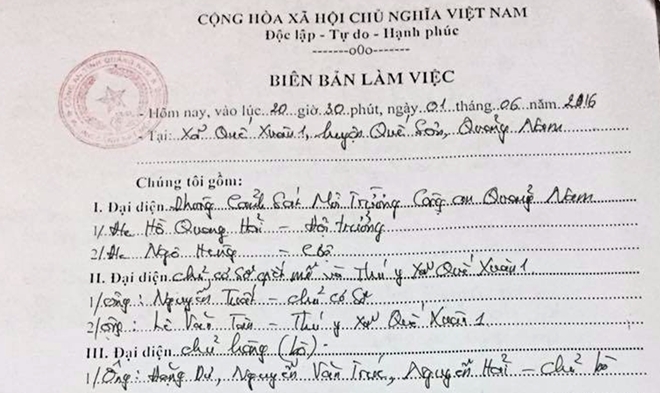 CỘNG HÒA XÃ HỘI CHỦ NGHĨA VIỆT NAM
Độc lập - Tự do - Hạnh phúc
-------o0o-------
BIÊN BẢN LÀM VIỆC
- Hôm nay, vào lúc 20 giờ 30 phút, ngày 01 tháng 06 năm 2016
- Tại: Xã Quế Xuân 1, huyện Quế Sơn, Quảng Nam
Chúng tôi gồm:
I. Đại diện Phòng Cảnh Sát Môi Trường Công an Quảng Nam
1/ Hồ Quang Hải - Đội trưởng
2/ Ngô Hùng - Cbộ
II. Đại diện chủ cơ sở giết mổ và Thú y xã Quế Xuân 1
1/ Ông: Nguyễn Tuất - chủ cơ sở
2/ Ông: Lê Văn Tân - Thú y xã Quế Xuân 1
III. Đại diện chủ hàng (bò).
1/ Ông: Đặng Dư, Nguyễn Văn Trúc, Nguyễn Hải - chủ bò